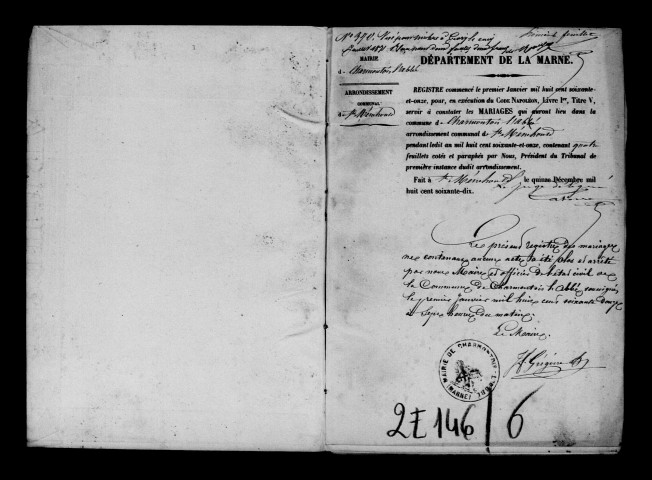 N° 490. Visé pour timbre à
Premier feuillet
MAIRIE
de Charmontois l'abbé
ARRONDISSEMENT
COMMUNAL
de Ste Ménehould
DÉPARTEMENT DE LA MARNE.
REGISTRE commencé le premier Janvier mil huit cent soixante-
et-onze, pour, en exécution du CODE NAPOLÉON, Livre Ier, Titre V,
servir à constater les MARIAGES qui auront lieu dans la
commune de Charmontois l'abbé
arrondissement communal de Ste Ménehould
pendant ledit an mil huit cent soixante-et-onze, contenant quatre
feuillets cotés et paraphés par Nous, Président du Tribunal de
première instance dudit arrondissement.
Fait à Ste Ménehould, le quinze Décembre mil
huit cent soixante-dix.
Le juge
Le présent registre des mariages
ne contenant aucun acte, a été clos et arrêté
par nous Maire et officier de l'état civil de
la Commune de Charmontois l'abbé, soussigné
le premier janvier mil huit cent soixante douze
à sept heures du matin.
Le Maire.
MAIRIE DE CHARMONTOIS-L'ABBÉ
(MARNE)
2E 146/6